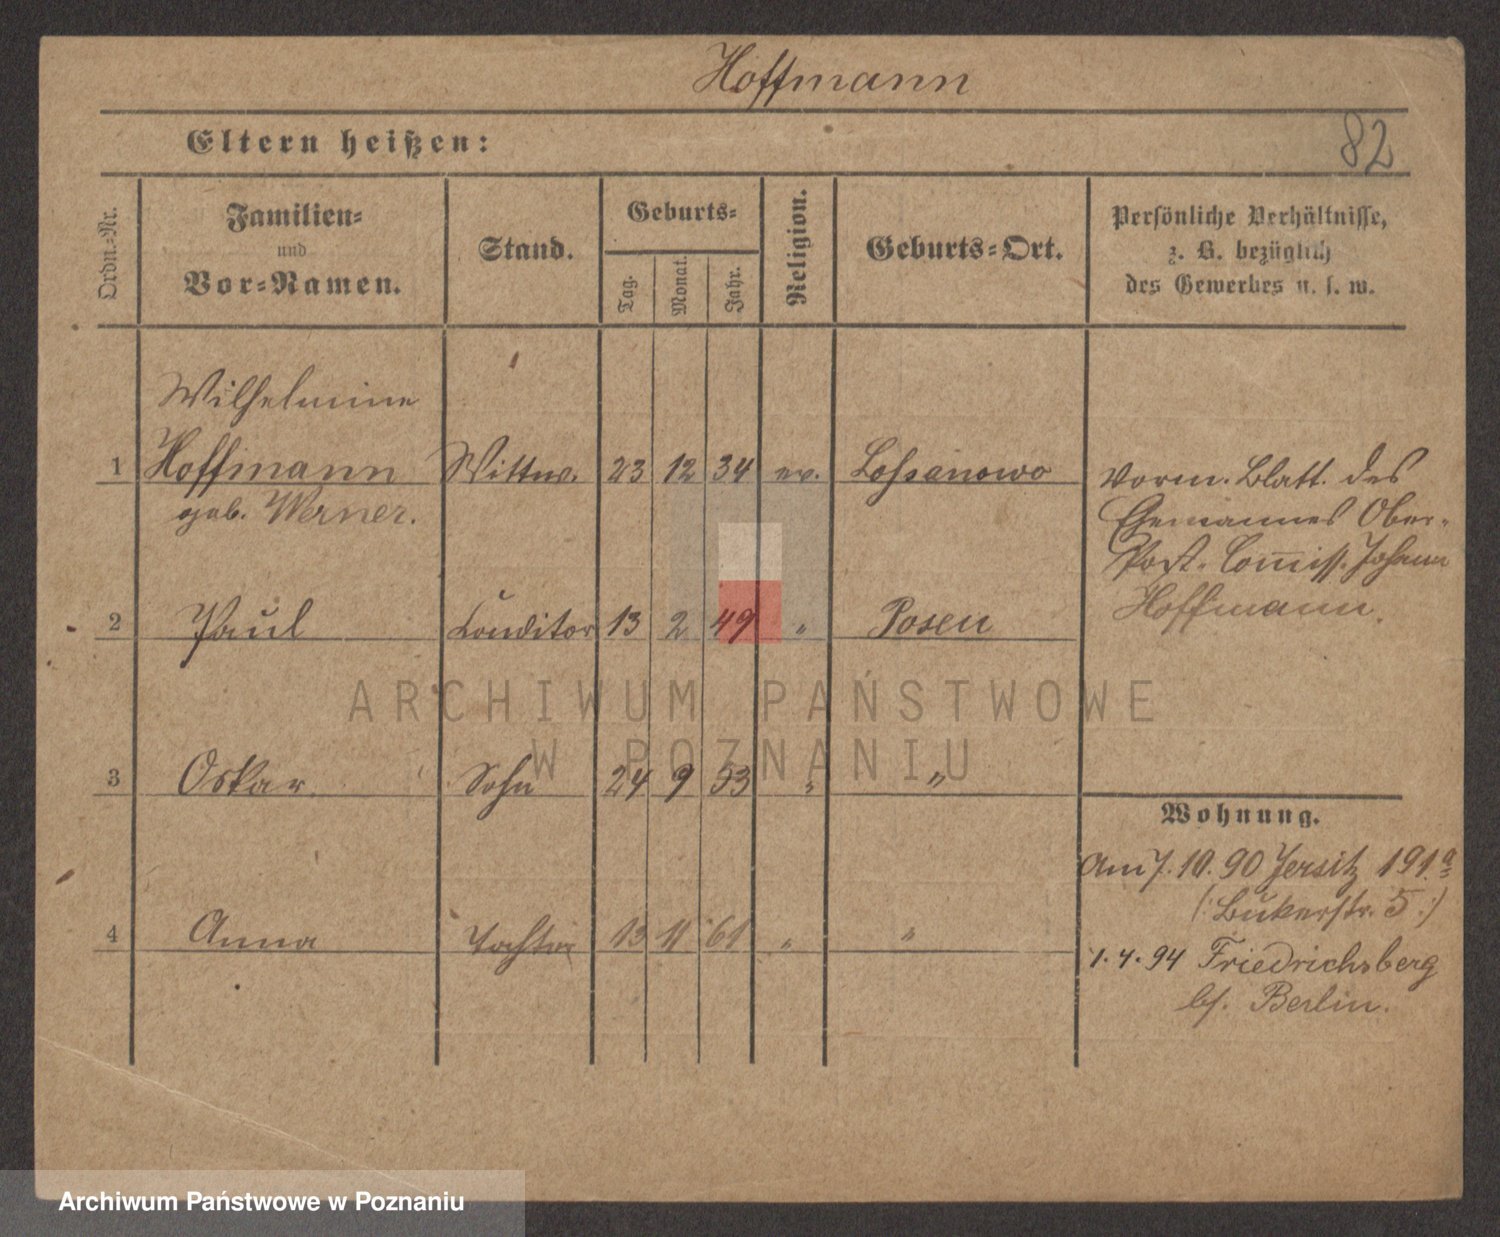 Hoffmann
Eltern heißen:
82
Ordn.-Nr.
Familien-
und
Vor-Namen.
Stand.
Geburts-
Tag.
Monat.
Jahr.
Religion.
Geburts-Ort.
Persönliche Verhältnisse,
z. B. bezüglich
des Gewerbes u. s. w.
Wilhelmine
1 Hoffmann Wittwe. 23 12 34 ev. Lossanowo
geb. Werner.
vorm. Blatt. des
Ehemannes Ober-
Post-Commiss. Johann
Hoffmann.
2 Paul Conditor 13 2 49 " Posen
ARCHIWUM PAŃSTWOWE
W POZNANIU
3 Oskar Sohn 24 9 53 " "
Wohnung.
Am 7. 10. 90 Jersitz 191.a
(: Bukerstr. 5 :)
4 Anna Tochter 13 11 61 " "
1. 4. 94 Friedrichsberg
b/. Berlin.
Archiwum Państwowe w Poznaniu